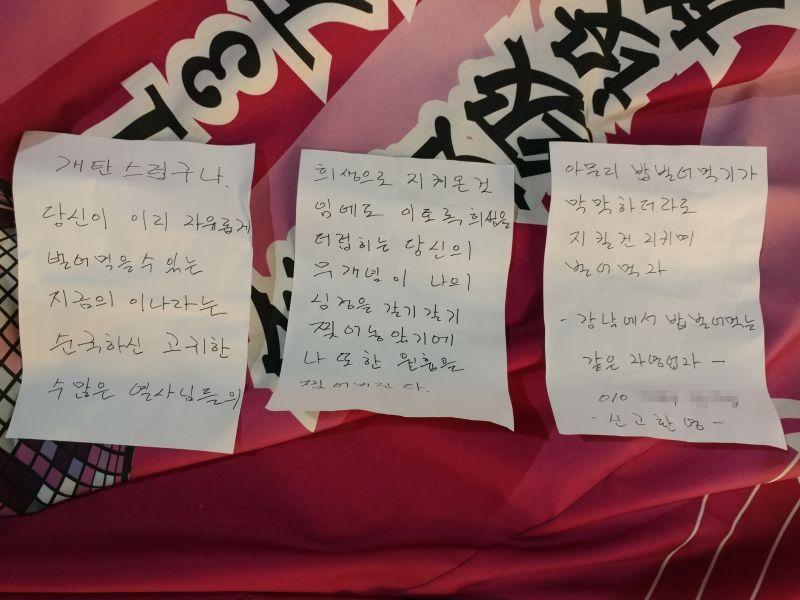 개탄스럽구나.
당신이 이리 자유롭게
벌어먹을수 있는
지금의 이나라는
순국하신 고귀한
수많은 열사님들의
희생으로 지켜온것
임에도 이토록 희생을
더럽히는 당신의
무개념이 나의
심정을 갈기갈기
찢어놓았기에
나 또한 현흡을
찢어버린다.
아무리 밥벌어먹기가
막막하더라도
지킬건 지키며
벌어먹자
- 강남에서 밥벌어먹는
같은 자영업자 -
010
- 신고환영 -